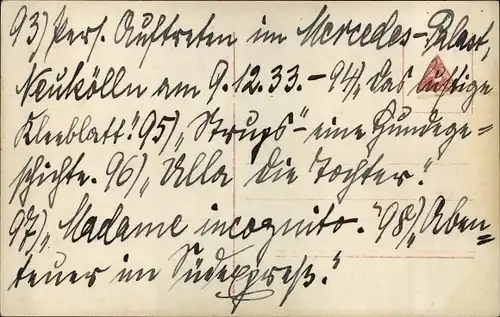 93) Pers. Auftreten im Mercedes-Palast,
Neukölln am 9.12.33.- 94) „Das lustige
Kleeblatt." 95) „Strups" - eine Hundege=
schichte. 96) „Ulla die Tochter."
97) „Madame incognito." 98) „Aben=
teuer im Südexpreß."